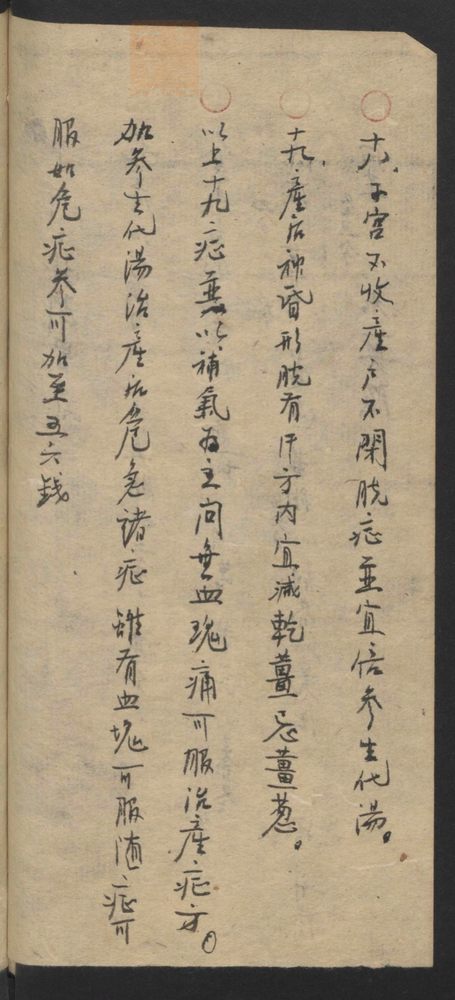 十八、子宮不收產户不閑脱症並宜倍參生化湯。
十九、產后神昏形脱有汗方内宜減乾薑忌薑葱。
以上十九症並以補氣為主问無血塊痛可服治產症方。
加參生化湯治產后危急諸症雖有血塊可服隨症可
服如危症参可加至五六錢